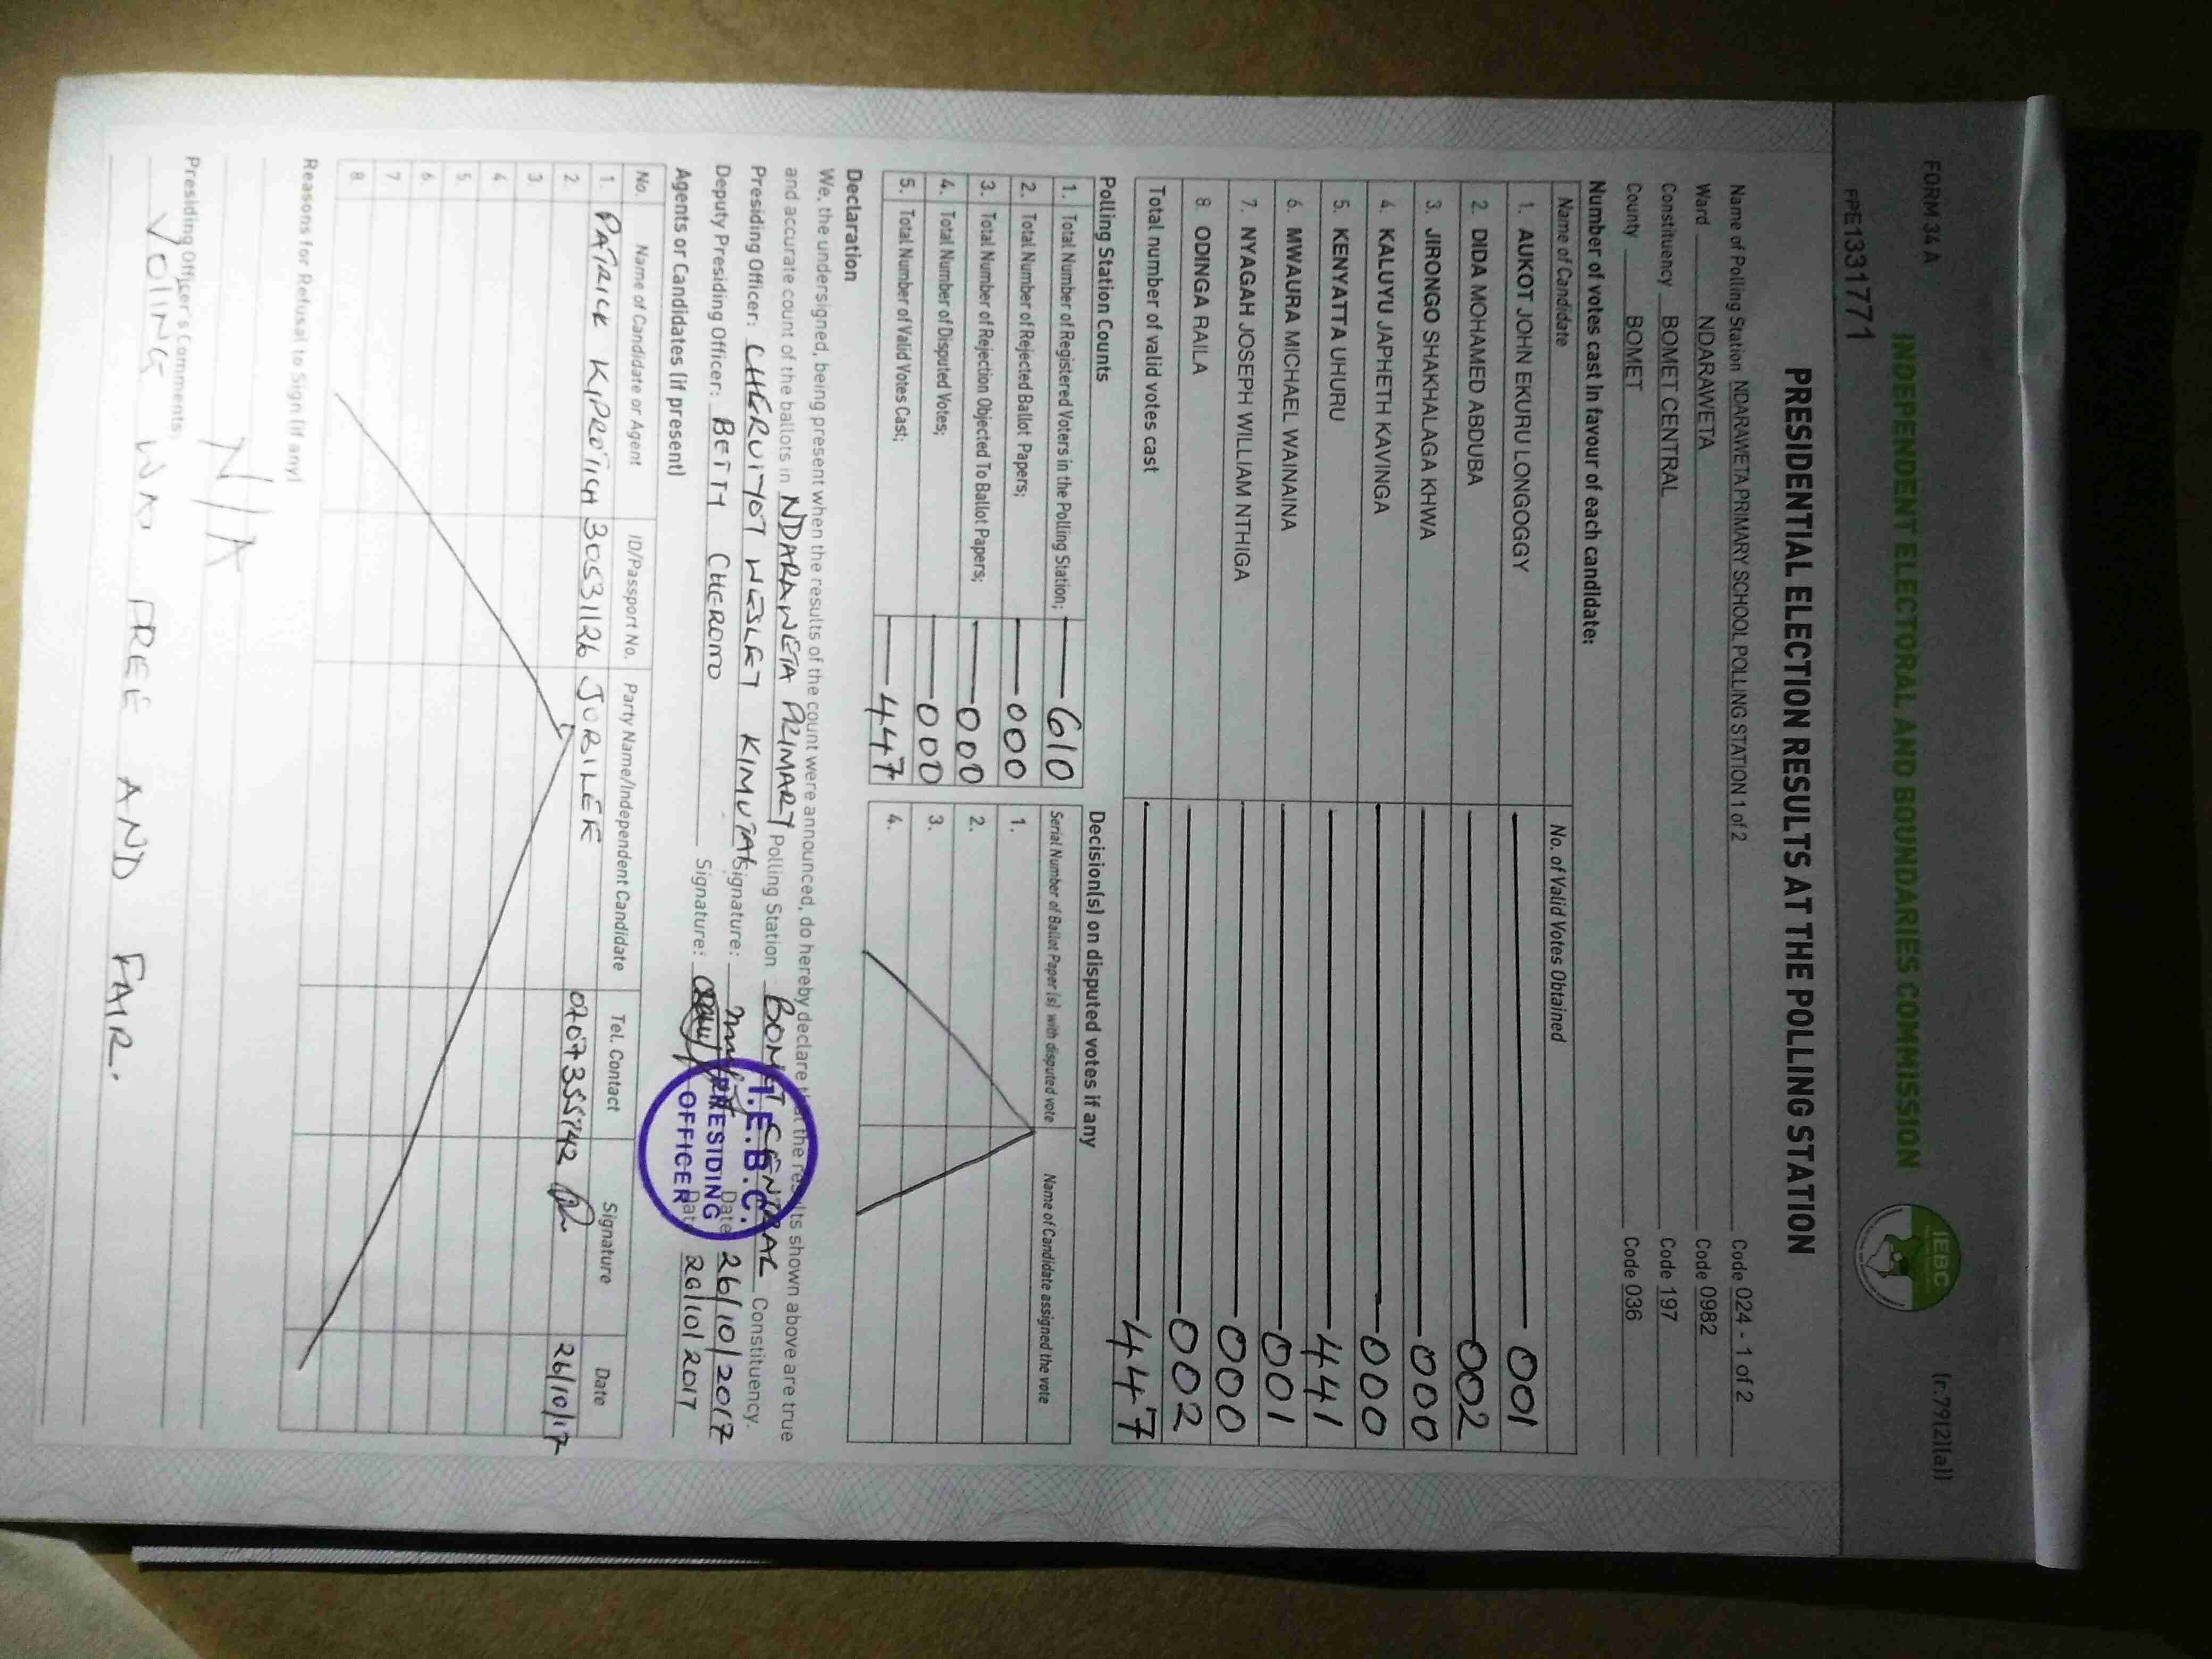 FORM 34 A
(r.79(2)(a))
INDEPENDENT ELECTORAL AND BOUNDARIES COMMISSION
IEBC
FPE1331771
PRESIDENTIAL ELECTION RESULTS AT THE POLLING STATION
Name of Polling Station NDARAWETA PRIMARY SCHOOL POLLING STATION 1 of 2 Code 024 - 1 of 2
Ward NDARAWETA Code 0982
Constituency BOMET CENTRAL Code 197
County BOMET Code 036
Number of votes cast in favour of each candidate:
Name of Candidate No. of Valid Votes Obtained
1. AUKOT JOHN EKURU LONGOGGY 001
2. DIDA MOHAMED ABDUBA 002
3. JIRONGO SHAKHALAGA KHWA 000
4. KALUYU JAPHETH KAVINGA 000
5. KENYATTA UHURU 441
6. MWAURA MICHAEL WAINAINA 001
7. NYAGAH JOSEPH WILLIAM NTHIGA 000
8. ODINGA RAILA 002
Total number of valid votes cast 447
Polling Station Counts
1. Total Number of Registered Voters in the Polling Station; 610
2. Total Number of Rejected Ballot Papers; 000
3. Total Number of Rejection Objected To Ballot Papers; 000
4. Total Number of Disputed Votes; 000
5. Total Number of Valid Votes Cast; 447
Decision(s) on disputed votes if any
Serial Number of Ballot Paper (s) with disputed vote Name of Candidate assigned the vote
1.
2.
3.
4.
Declaration
We, the undersigned, being present when the results of the count were announced, do hereby declare that the results shown above are true
and accurate count of the ballots in NDARAWETA PRIMARY Polling Station BOMET CENTRAL Constituency.
Presiding Officer: CHERUIYOT WESLEY KIMUTAI Signature: Date 26/10/2017
Deputy Presiding Officer: BETTY CHERONO Signature: Date 26/10/2017
I.E.B.C.
PRESIDING
OFFICER
Agents or Candidates (if present)
No. Name of Candidate or Agent ID/Passport No. Party Name/Independent Candidate Tel. Contact Signature Date
1. PATRICK KIPROTICH 30531126 JUBILEE 0707355742 26/10/17
2.
3.
4.
5.
6.
7.
8.
Reasons for Refusal to Sign (if any)
N/A
Presiding Officer's Comments:
VOTING WAS FREE AND FAIR.